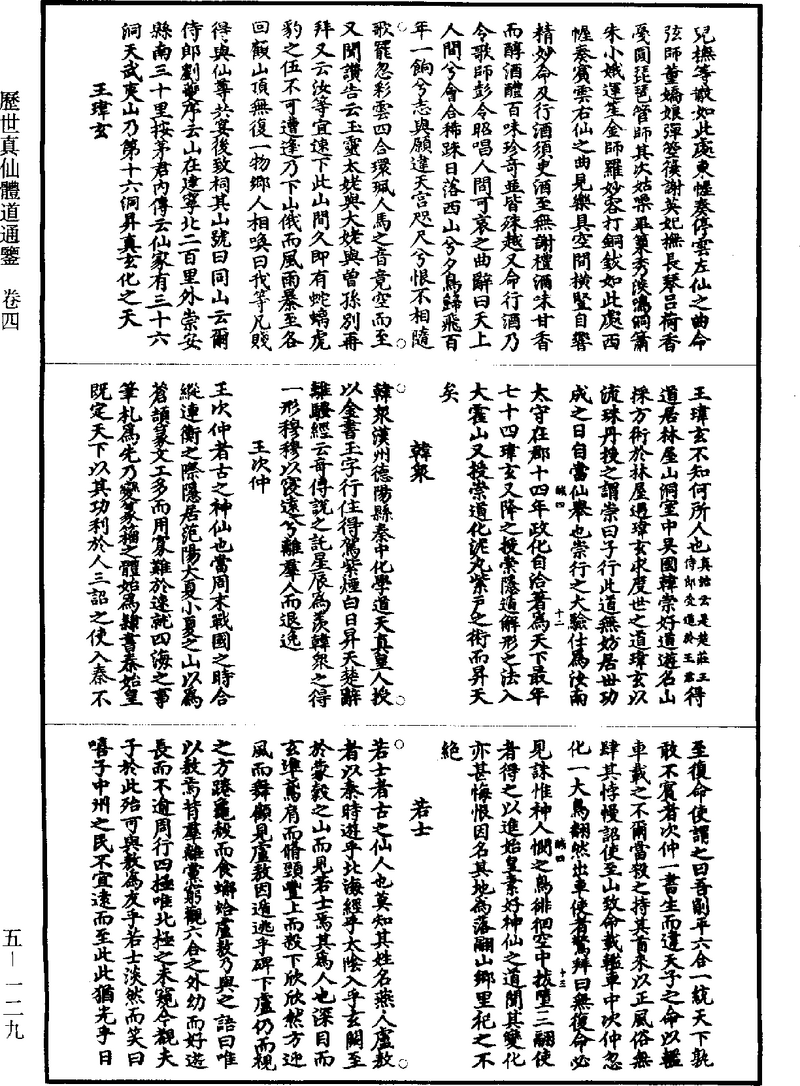 歷世真仙體道通鑒　卷四
五—一二九
兒撫等敲如此處東幄奏停雲左仙之曲命
弦師董嬌娘彈箜篌謝英妃撫長琴呂荷香
戛圓琵琶管師其次姑噪畢篥秀淡鳴洞簫
朱小娥運笙金師羅妙容打銅鈸如此處西
幄奏賓雲右仙之曲見樂具空間橫豎自響
精妙命及行酒須臾酒至無謝樽酒味甘香
而醇酒醴百味珍奇並皆殊越又命行酒乃
令歌師彭令昭唱人間可哀之曲辭曰天上
人間兮會合稀踈日落西山兮夕鳥歸飛百
年一餉兮志與願違天宮咫尺兮恨不相隨
歌罷忽彩雲四合環珮人馬之音竟空而至
又聞讚告云玉靈太姥與大姥與曾孫別再
拜又云汝等宜速下此山間久即有蛇螭虎
豹之伍不可遭逢乃下山俄而風雨暴至各
回顧山頂無復一物鄉人相喚曰我等凡賤
得與仙尊共宴後致祠其山號曰同山云爾
侍郎劉夔序云山在建寧北二百里外崇安
縣南三十里按茅君內傳云仙家有三十六
洞天武夷山乃第十六洞昇真玄化之天
王瑋玄
王瑋玄不知何所人也真誥云是楚莊王侍郎受道於王君得
道居林屋山洞室中吳國韓崇好道遊名山
採方術於林屋遇瑋玄求度世之道瑋玄以
流珠丹授之謂崇曰子行此道無妨居世功
成之日自當仙舉也崇行之大驗仕為汝南
太守在郡十四年政化自洽著為天下最年
七十四瑋玄又降之授崇隱遁解形之法入
大霍山又授崇道化泥丸紫戶之術而昇天
矣
韓眾
韓眾漢州德陽縣秦中化學道天真皇人授
以金書玉字行住得駕紫煙白日昇天楚辭
離騷經云奇傅說之託星辰為羨韓眾之得
一形穆穆以寖遠兮離羣人而退逸
王次仲
王次仲者古之神仙也當周末戰國之時合
縱連衡之際隱居范陽大夏小夏之山以為
蒼頡篆文工多而用寡難於速就四海之事
筆札為先乃變篆籀之體始為隸書秦始皇
既定天下以其功利於人三詔之使入秦不
至復命使謂之曰吾削平六合一統天下孰
敢不賓者次仲一書生而違天子之命以檻
車載之不爾當殺之持其首來以正風俗無
肆其悖慢詔使至山致命載檻車中次仲忽
化一大鳥翻然出車使者驚拜曰無復命必
見誅惟神人憫之鳥徘徊空中拔墮三翮使
者得之以進始皇素好神仙之道聞其變化
亦甚悔恨因名其地為落翮山鄉里祀之不
絕
若士
若士者古之仙人也莫知其姓名燕人盧敖
者以秦時遊乎北海經乎太陰入乎玄闕至
於蒙穀之山而見若士焉其為人也深目而
玄準鳶肩而脩頸豐上而殺下欣欣然方迎
風而舞顧見盧敖因遁逃乎碑下盧仍而視
之方踡龜殼而食蟹蛤盧敖乃與之語曰唯
以敖焉背羣離黨窮觀六合之外幼而好遊
長而不渝周行四極唯北極之未窺今覩夫
子於此殆可與敖為友乎若士淡然而笑曰
嘻子中州之民不宜遠而至此此猶光乎日